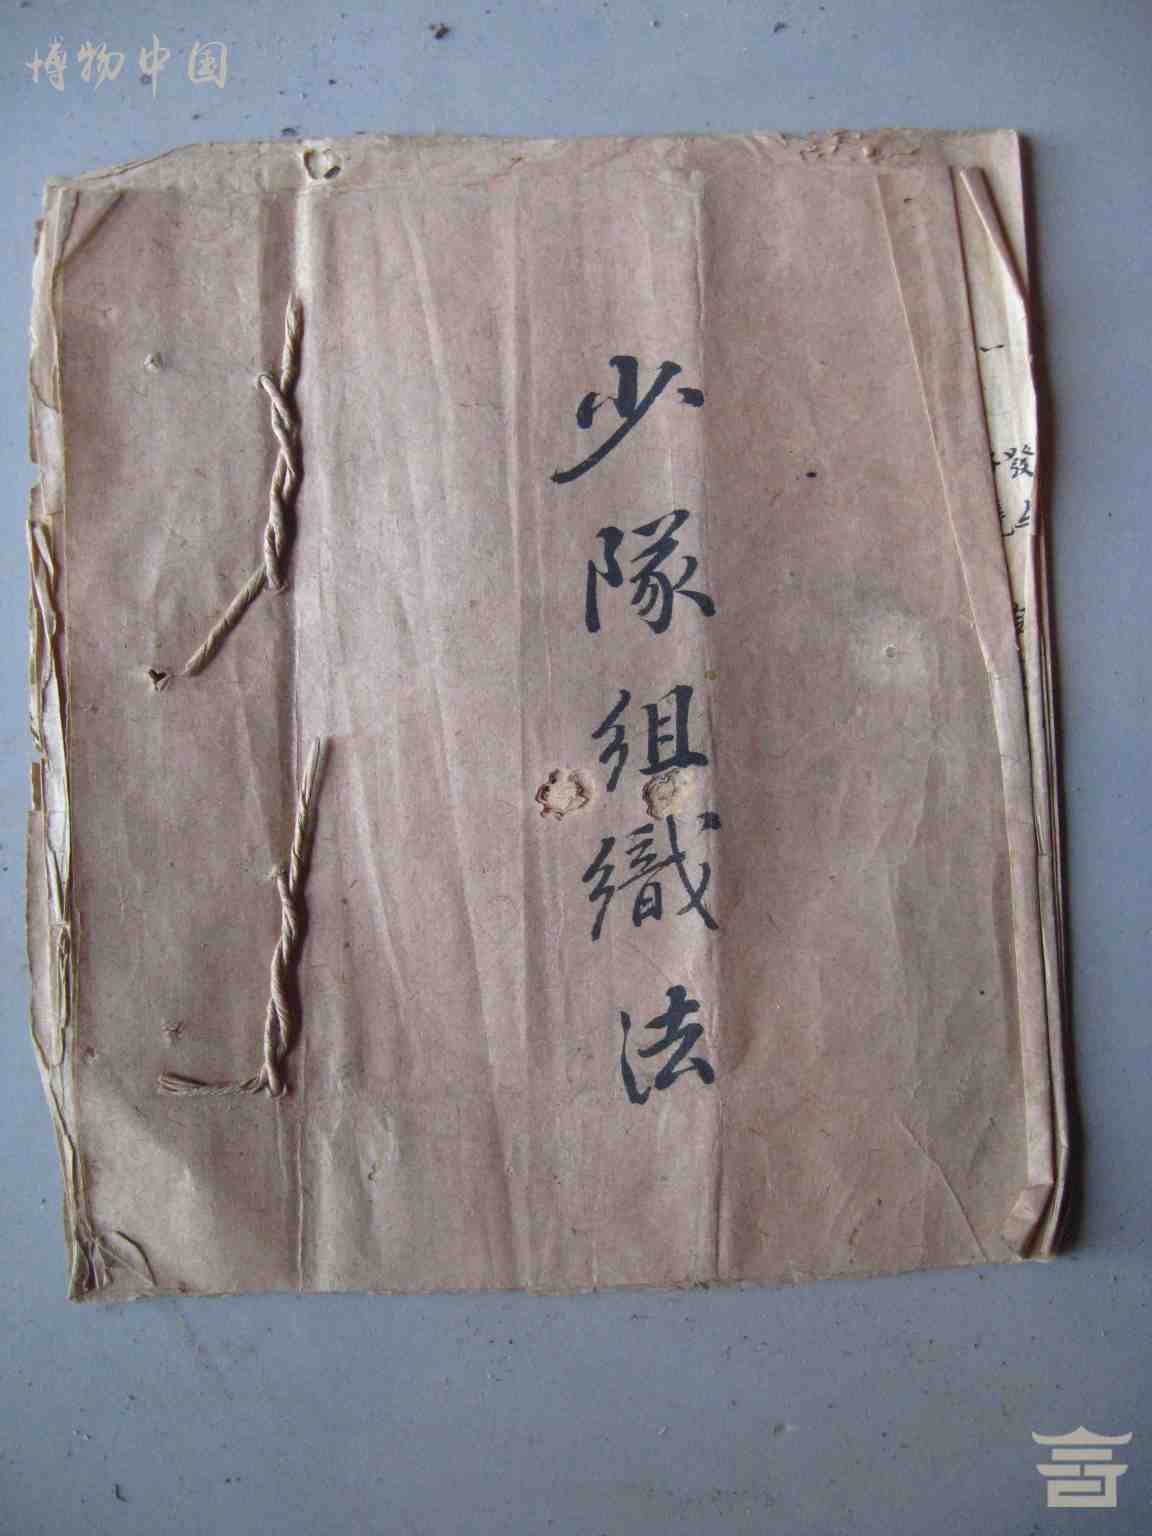 博物中国
少隊組織法
一
發